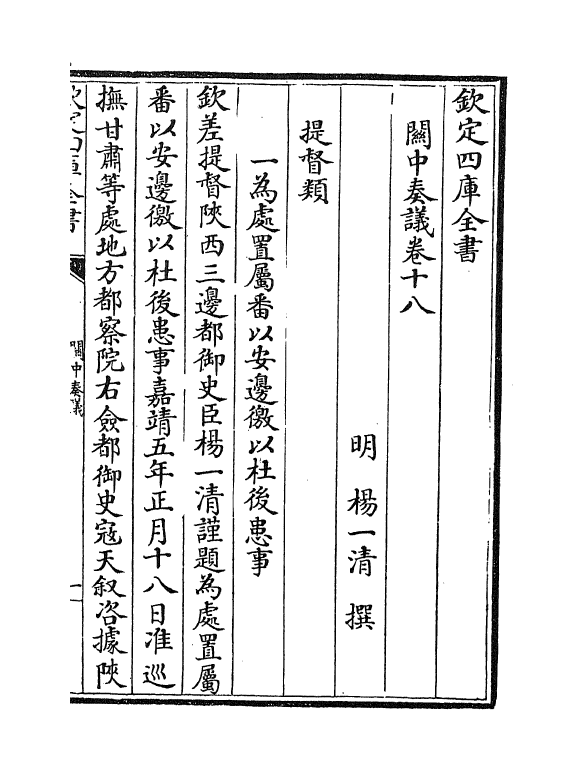 欽定四庫全書
關中奏議卷十八
明 楊一清 撰
提督類
一為處置屬番以安邊徼以杜後患事
欽差提督陝西三邊都御史臣楊一清謹題為處置屬
番以安邊徼以杜後患事嘉靖五年正月十八日准巡
撫甘肅等處地方都察院右僉都御史寇天叙咨據陝
欽定四庫全書
關中奏議
一